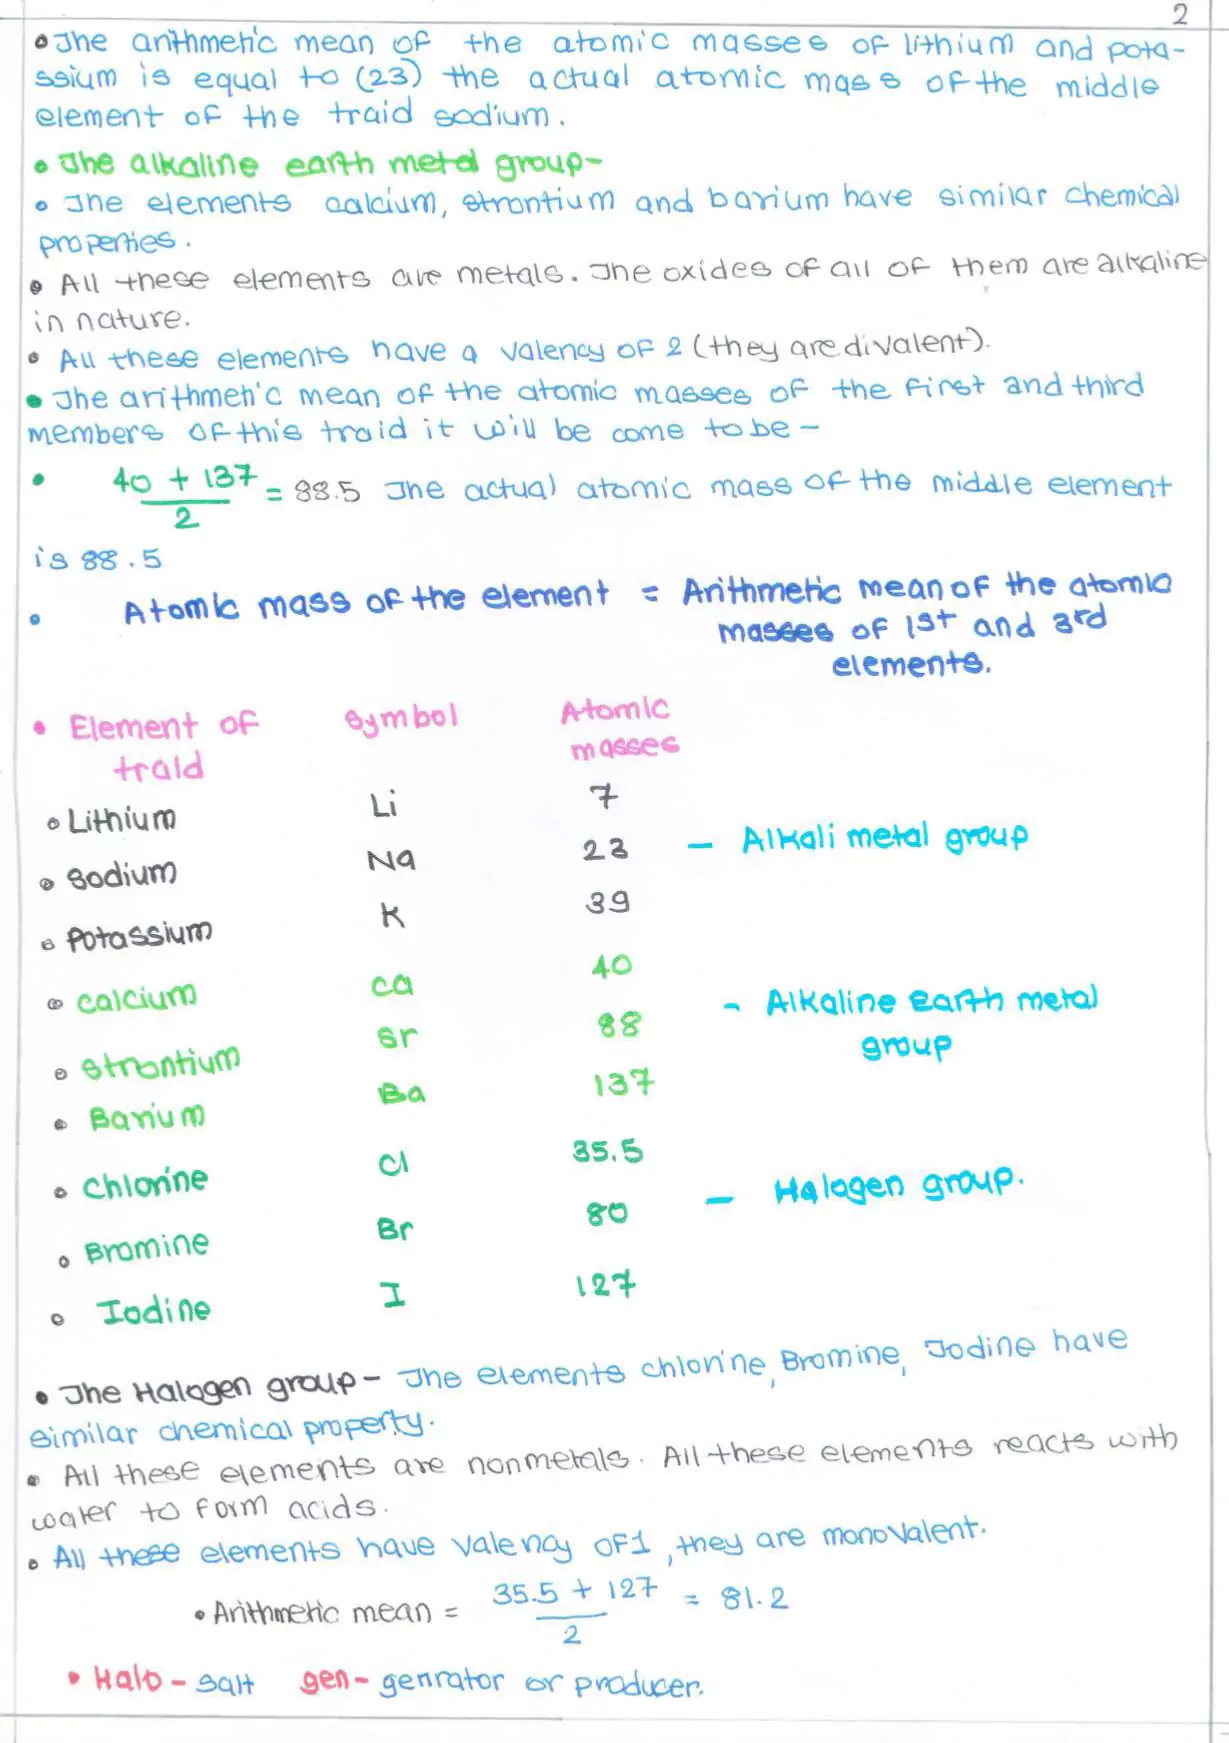 2
• The arithmetic mean of the atomic masses of lithium and pota-
ssium is equal to (23) the actual atomic mass of the middle
element of the traid sodium.
• The alkaline earth metal group-
• The elements calcium, strontium and barium have similar chemical
properties.
• All these elements are metals. The oxides of all of them are alkaline
in nature.
• All these elements have a valency of 2 (they are divalent).
• The arithmetic mean of the atomic masses of the first and third
members of this traid it will be come to be -
• 40 + 137 / 2 = 88.5 The actual atomic mass of the middle element
is 88.5
• Atomic mass of the element = Arithmetic mean of the atomic
masses of 1st and 3rd
elements.
• Element of traid Symbol Atomic masses
• Lithium Li 7
• Sodium Na 23 - Alkali metal group
• Potassium K 39
• Calcium Ca 40
• Strontium Sr 88 - Alkaline earth metal group
• Barium Ba 137
• Chlorine Cl 35.5
• Bromine Br 80 - Halogen group.
• Iodine I 127
• The Halogen group - The elements chlorine, Bromine, Iodine have
similar chemical property.
• All these elements are nonmetals. All these elements reacts with
water to form acids.
• All these elements have valency of 1, they are monovalent.
• Arithmetic mean = 35.5 + 127 / 2 = 81.2
• Halo - salt gen - genrator or producer.